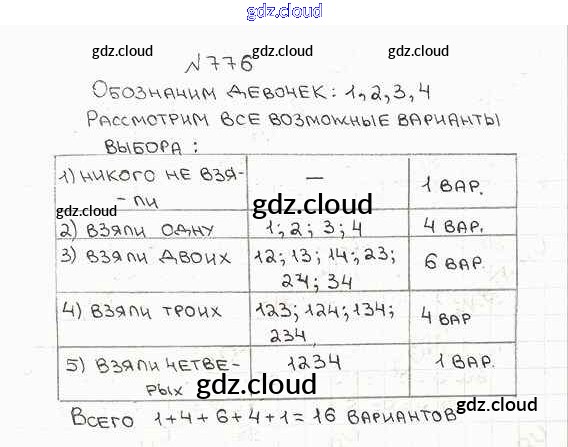 gdz.cloud
gdz.cloud gdz.cloud gdz.cloud
№776
ОБОЗНАЧИМ ДЕВОЧЕК: 1,2,3,4
РАССМОТРИМ ВСЕ ВОЗМОЖНЫЕ ВАРИАНТЫ
ВЫБОРА:
1) НИКОГО НЕ ВЗЯ- — 1 ВАР.
- ЛИ
gdz.cloud gdz.cloud
2) ВЗЯЛИ ОДНУ 1; 2; 3; 4 4 ВАР.
3) ВЗЯЛИ ДВОИХ 12; 13; 14; 23; 6 ВАР.
24; 34
4) ВЗЯЛИ ТРОИХ 123; 124; 134; 4 ВАР
234
gdz.cloud
5) ВЗЯЛИ ЧЕТВЕ- 1234 1 ВАР.
РЫХ
gdz.cloud gdz.cloud
ВСЕГО 1+4+6+4+1=16 ВАРИАНТОВ
gdz.cloud